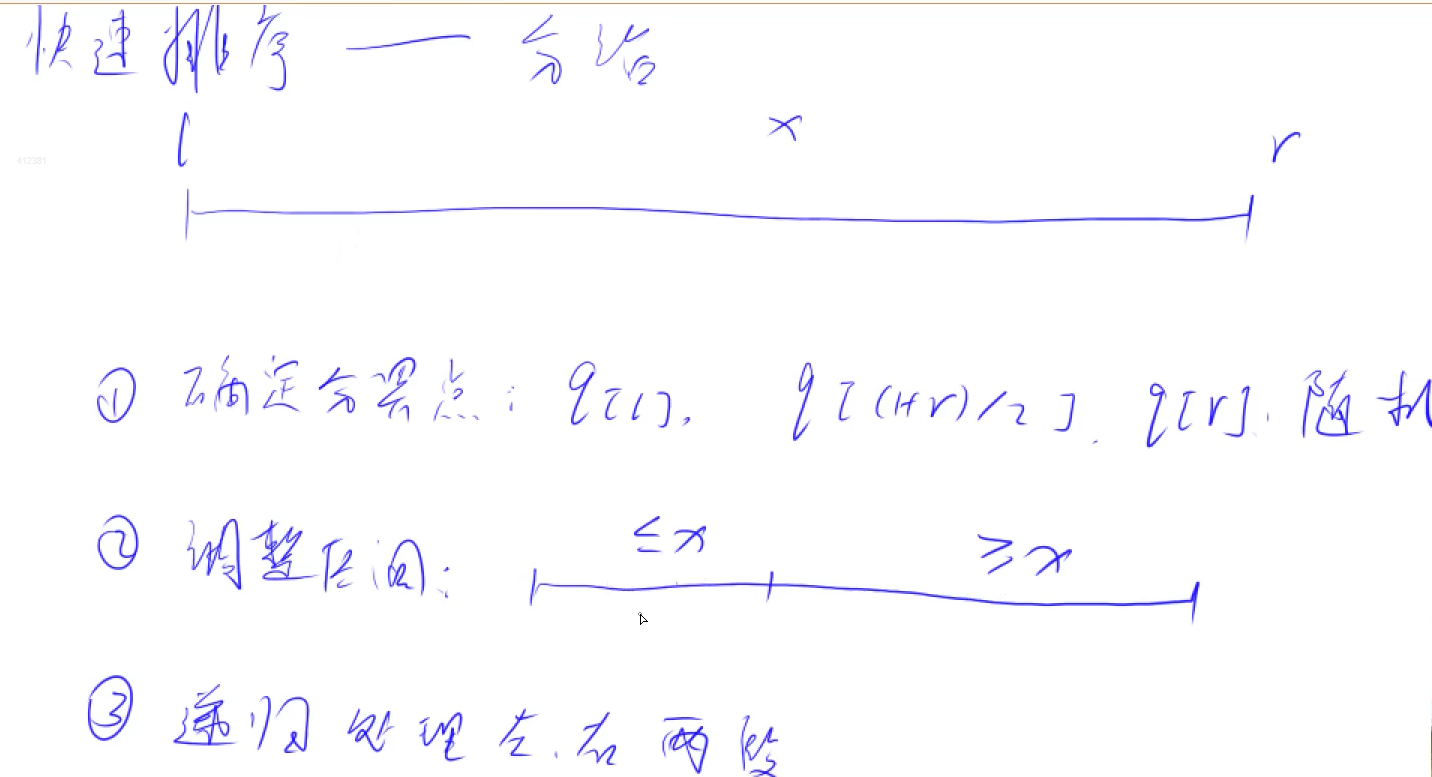 快速排序 —— 分治
l x r
412381
① 确定分界点: q[l], q[(l+r)/2], q[r], 随机
② 调整区间: ≤x ≥x
③ 递归处理左、右两段